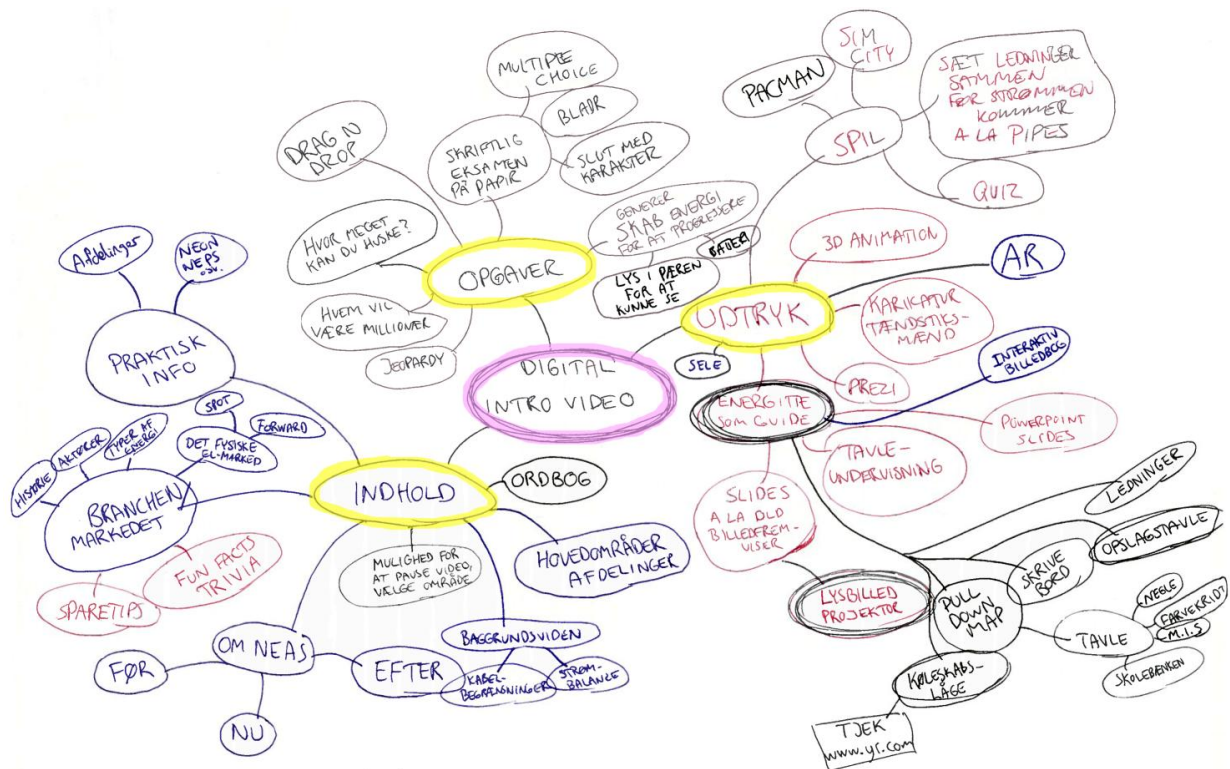 DIGITAL
INTRO VIDEO
OPGAVER
DRAG N
DROP
SKRIFTLIG
EKSAMEN
PÅ PAPIR
MULTIPLE
CHOICE
BLADR
SLUT MED
KARAKTER
HVOR MEGET
KAN DU HUSKE?
HVEM VIL
VÆRE MILLIONÆR
JEOPARDY
GENERER
SKAB ENERGI
FOR AT PROGRESSERE
LYS I PÆREN
FOR AT
KUNNE SE
UDTRYK
SPIL
PACMAN
SIM
CITY
SÆT LEDNINGER
SAMMEN
FØR STRØMMEN
KOMMER
A LA PIPES
QUIZ
3D ANIMATION
AR
KARIKATUR
TÆNDSTIKS-
MÆND
PREZI
SELE
ENERGITTE
SOM GUIDE
INTERAKTIV
BILLEDBOG
POWERPOINT
SLIDES
TAVLE-
UNDERVISNING
SLIDES
A LA OLD
BILLEDFREM-
VISER
LYSBILLED
PROJEKTOR
LEDNINGER
OPSLAGSTAVLE
SKRIVE
BORD
PULL
DOWN
MAP
TAVLE
NEGLE
FARVEKRIDT
M.I.S
SKOLEBÆNKEN
KØLESKABS-
LÅGE
TJEK
www.yr.com
INDHOLD
ORDBOG
HOVEDOMRÅDER
AFDELINGER
MULIGHED FOR
AT PAUSE VIDEO,
VÆLGE OMRÅDE
BAGGRUNDSVIDEN
KABEL-
BEGRÆNSNINGER
STRØM-
BALANCE
OM NEAS
FØR
NU
EFTER
BRANCHEN
MARKEDET
HISTORIE
AKTØRER
TYPER AF
ENERGI
DET FYSISKE
EL-MARKED
SPOT
FORWARD
SPARETIPS
FUN FACTS
TRIVIA
PRAKTISK
INFO
Afdelinger
NEON
NEPS
osv.